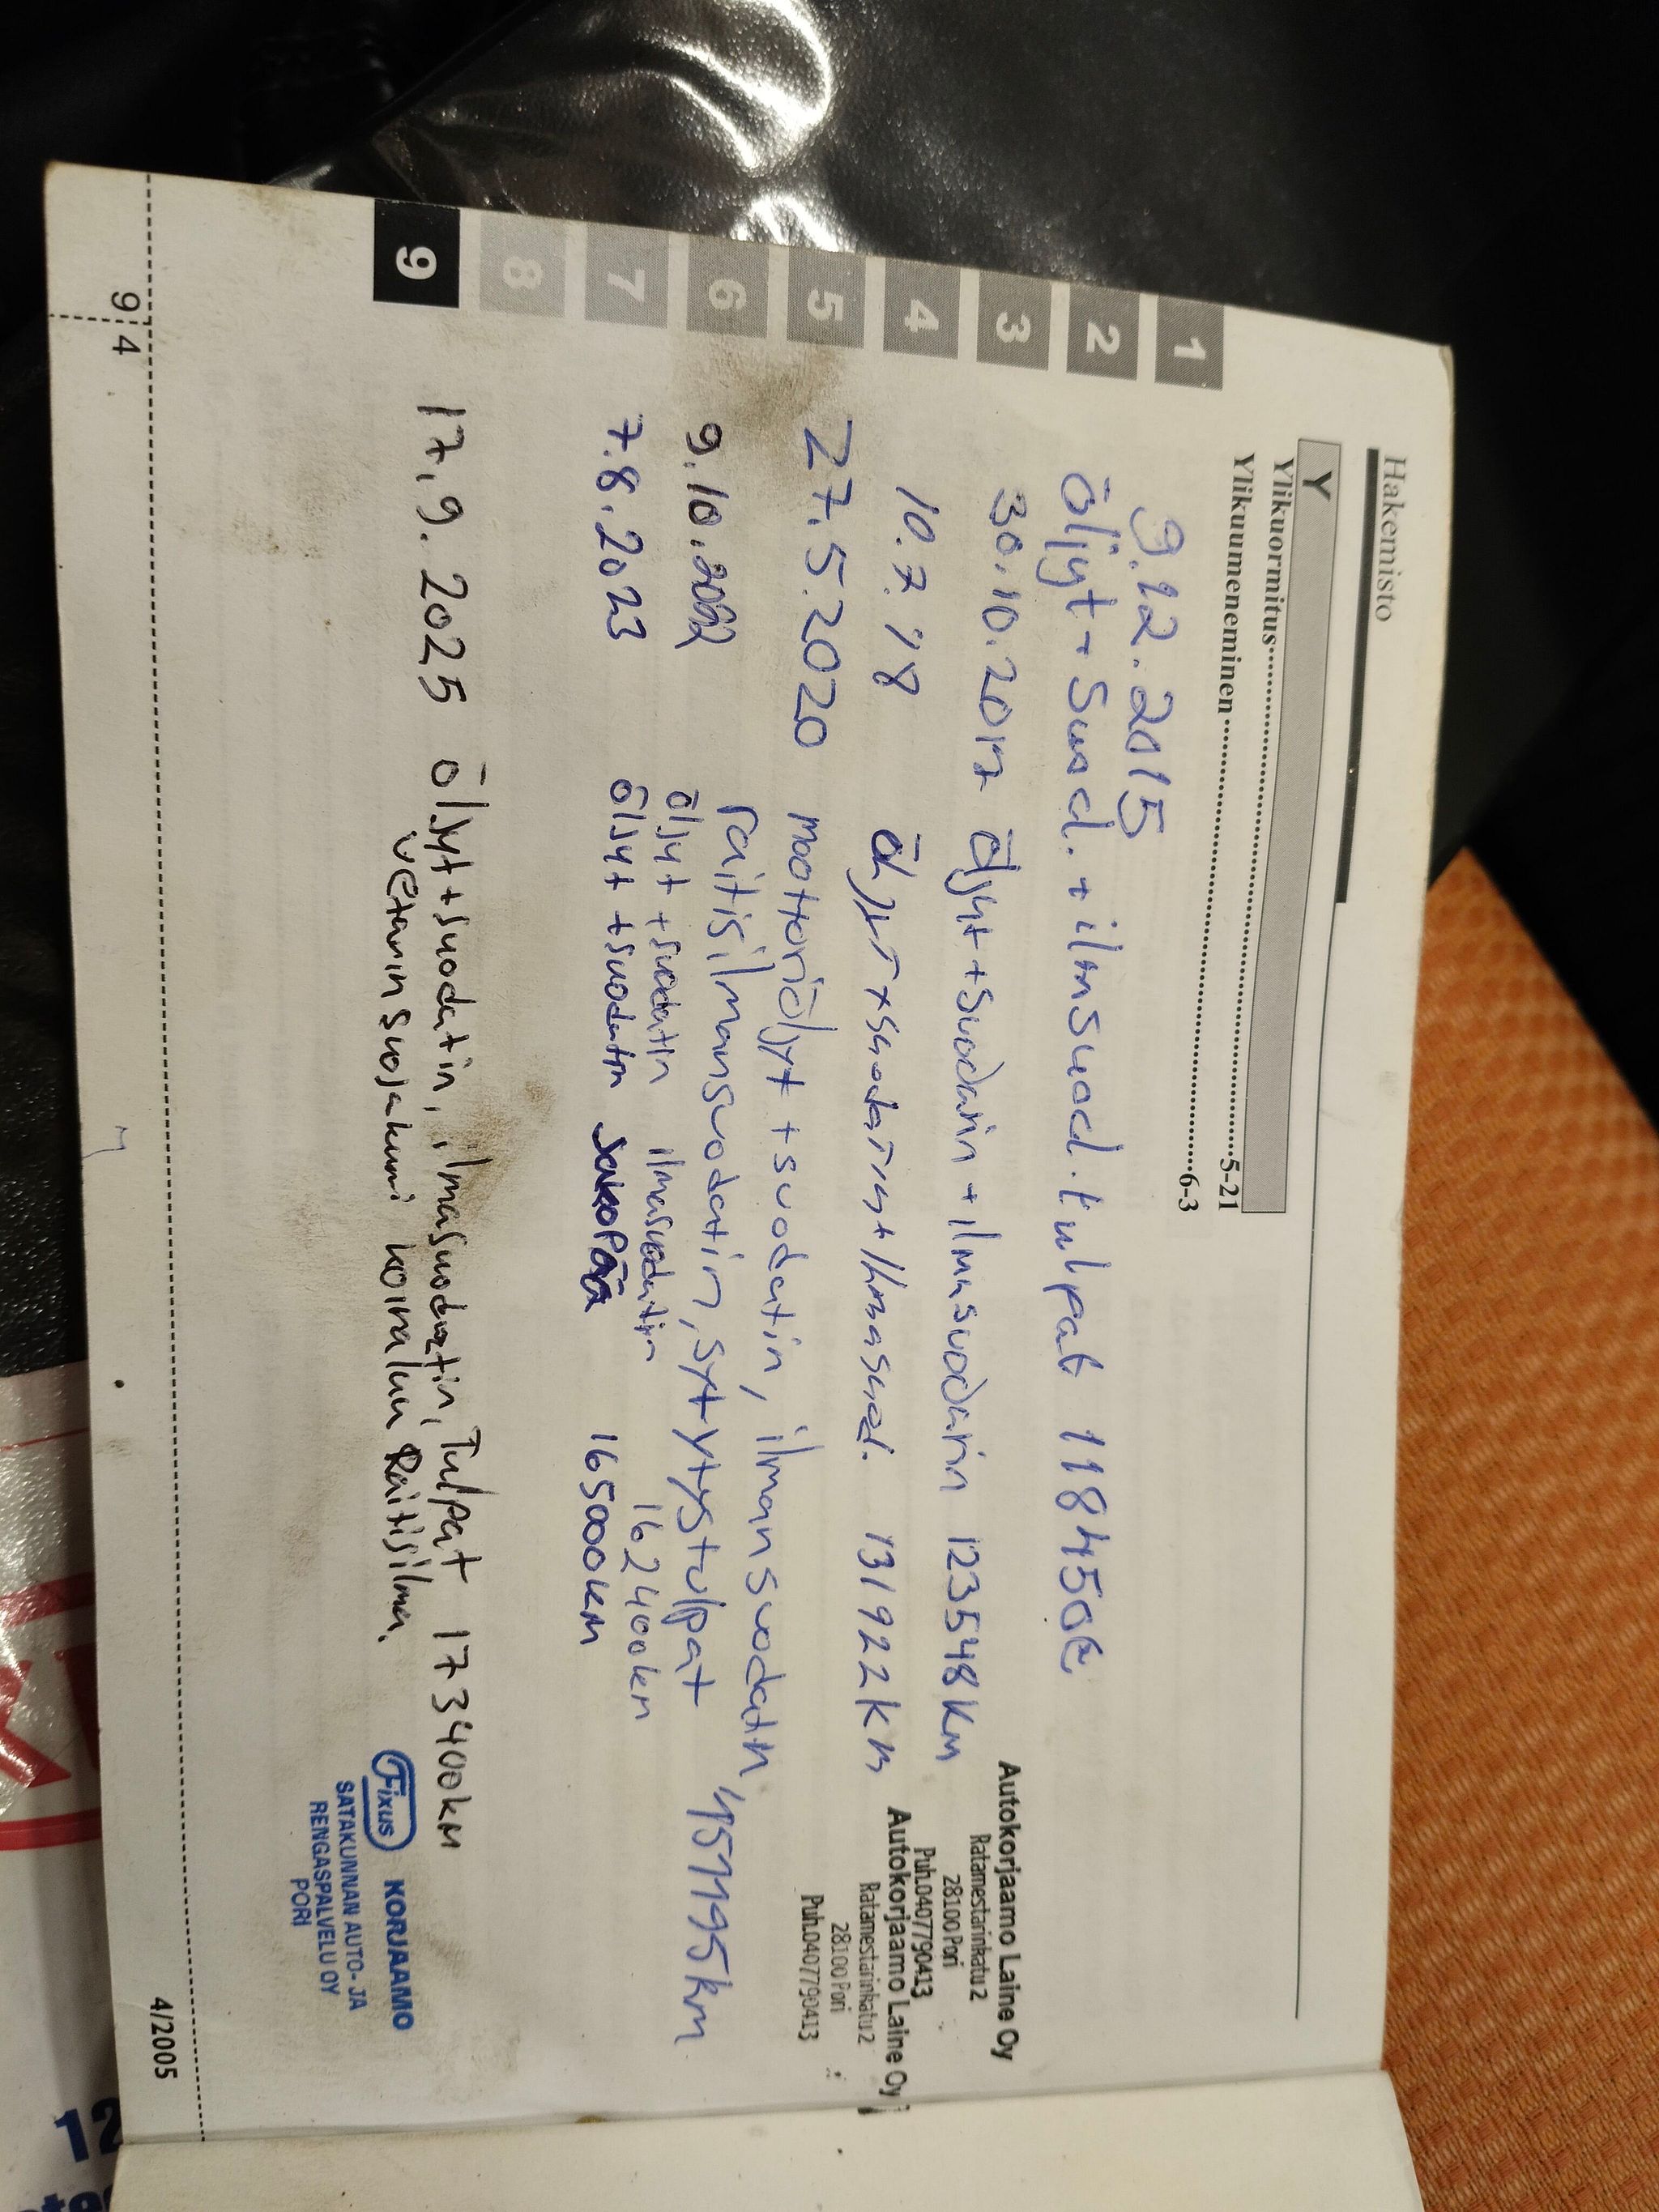 Hakemisto
Y
Ylikuormitus 5-21
Ylikuumeneminen 6-3
1
2
3
4
5
6
7
8
9
9.12.2015
öljyt + Suod. + ilmsuod. tulpat 118450
30.10.2017 öljyt + suodatin + ilmasuodatin 123548 km
Autokorjaamo Laine Oy
Ratamestarinkatu 2
28100 Pori
Puh.0407790413
10.7.'18 öljyt + suodatin + ilmasuod. 131922 km
Autokorjaamo Laine Oy
Ratamestarinkatu 2
28100 Pori
Puh.0407790413
27.5.2020 moottoriöljyt + suodatin, ilmansuodatin,
raitisilmansuodatin, sytytystulpat 151195 km
9.10.2022 öljyt + suodatin ilmasuodatin 162400km
7.8.2023 öljyt + suodatin Jakopää 165000km
17.9.2025 öljyt + suodatin, ilmasuodatin, Tulpat 173400km
vetarin suojakumi raitisilma.
Fixus KORJAAMO
SATAKUNNAN AUTO- JA
RENGASPALVELU OY
PORI
9 4
4/2005
12